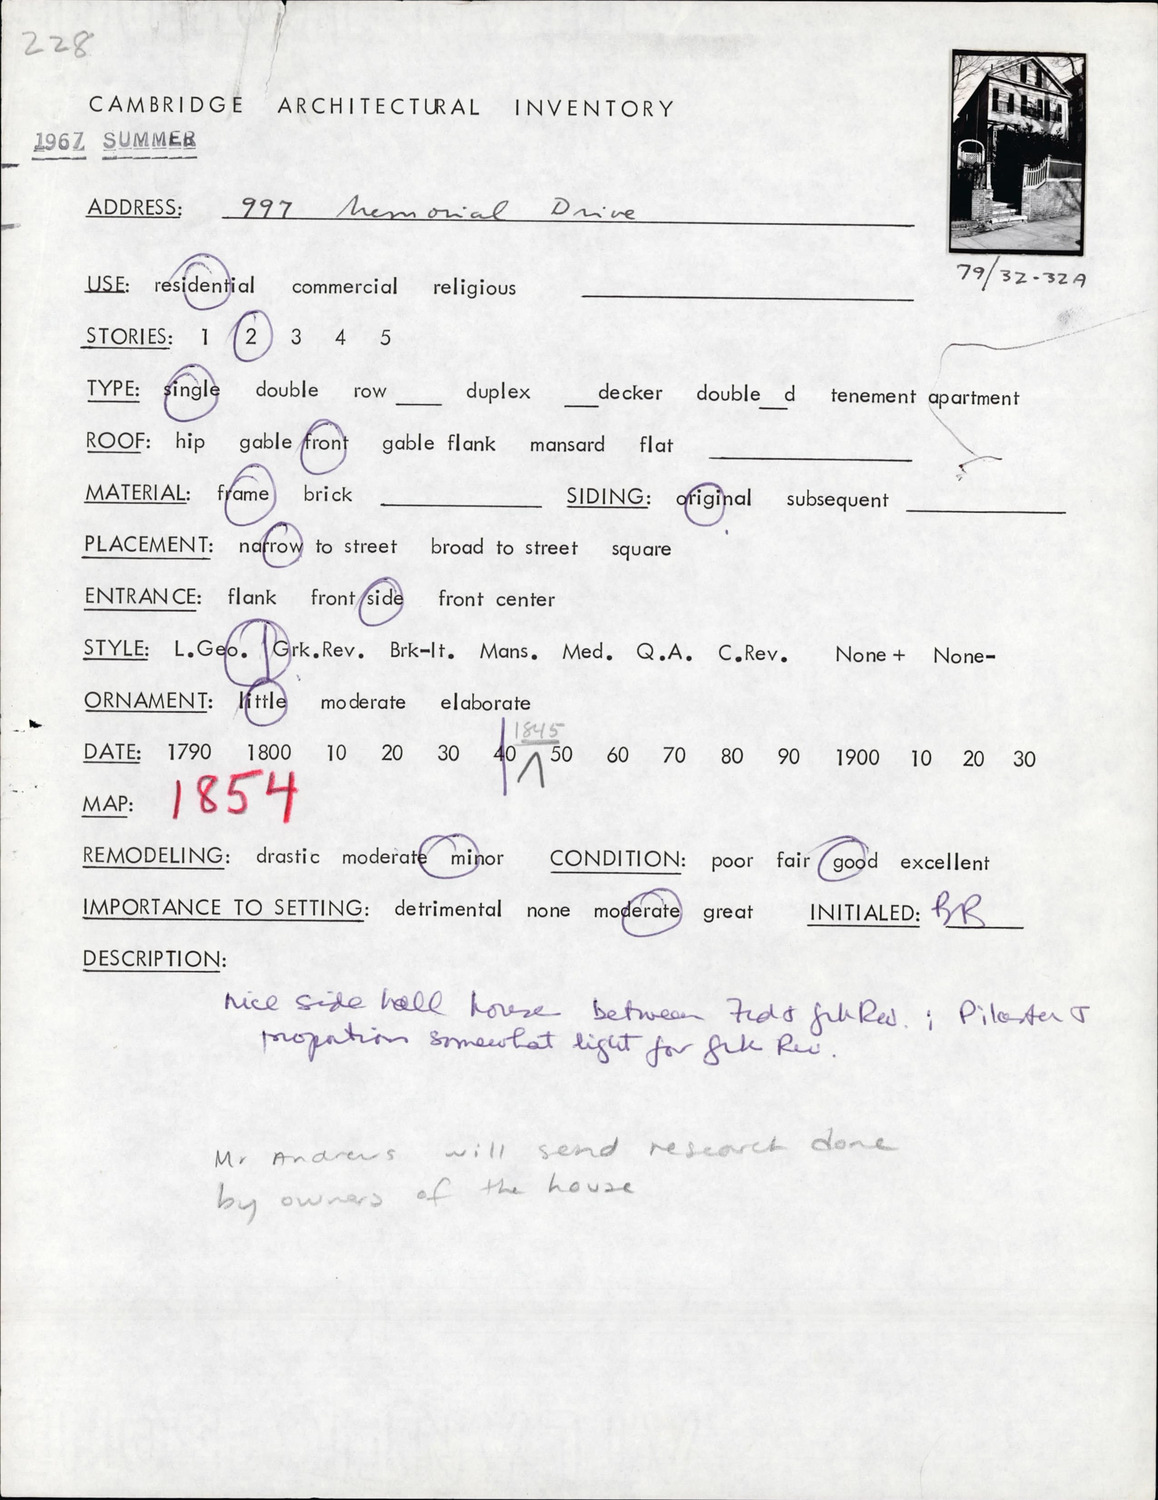 228
CAMBRIDGE ARCHITECTURAL INVENTORY
1967 SUMMER
ADDRESS: 997 Memorial Drive
79/32-32A
USE: residential commercial religious
STORIES: 1 2 3 4 5
TYPE: single double row ___ duplex ___decker double__d tenement apartment
ROOF: hip gable front gable flank mansard flat
MATERIAL: frame brick SIDING: original subsequent
PLACEMENT: narrow to street broad to street square
ENTRANCE: flank front side front center
STYLE: L.Geo. Grk.Rev. Brk-It. Mans. Med. Q.A. C.Rev. None + None-
ORNAMENT: little moderate elaborate
1845
DATE: 1790 1800 10 20 30 40 50 60 70 80 90 1900 10 20 30
MAP: 1854
REMODELING: drastic moderate minor CONDITION: poor fair good excellent
IMPORTANCE TO SETTING: detrimental none moderate great INITIALED: BR
DESCRIPTION:
nice side hall house between Fed & Grk Rev. ; Pilaster &
proportion somewhat light for Grk Rev.
Mr Andrews will send research done
by owners of the house